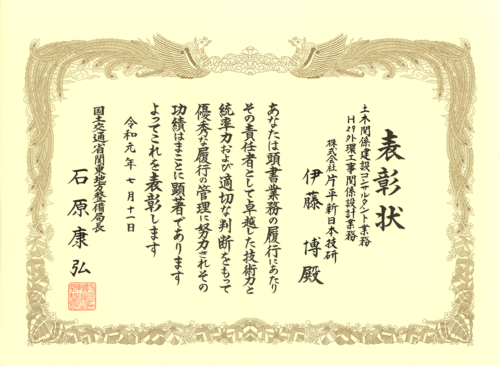 表彰状
土木関係建設コンサルタント業務
H29外環工事関係設計業務
株式会社片平新日本技研
伊藤 博殿
あなたは頭書業務の履行にあたり
その責任者として卓越した技術力と
統率力および適切な判断をもって
優秀な履行の管理に努力されその
功績はまことに顕著であります
よってこれを表彰します
令和元年七月十一日
国土交通省関東地方整備局長
石原康弘